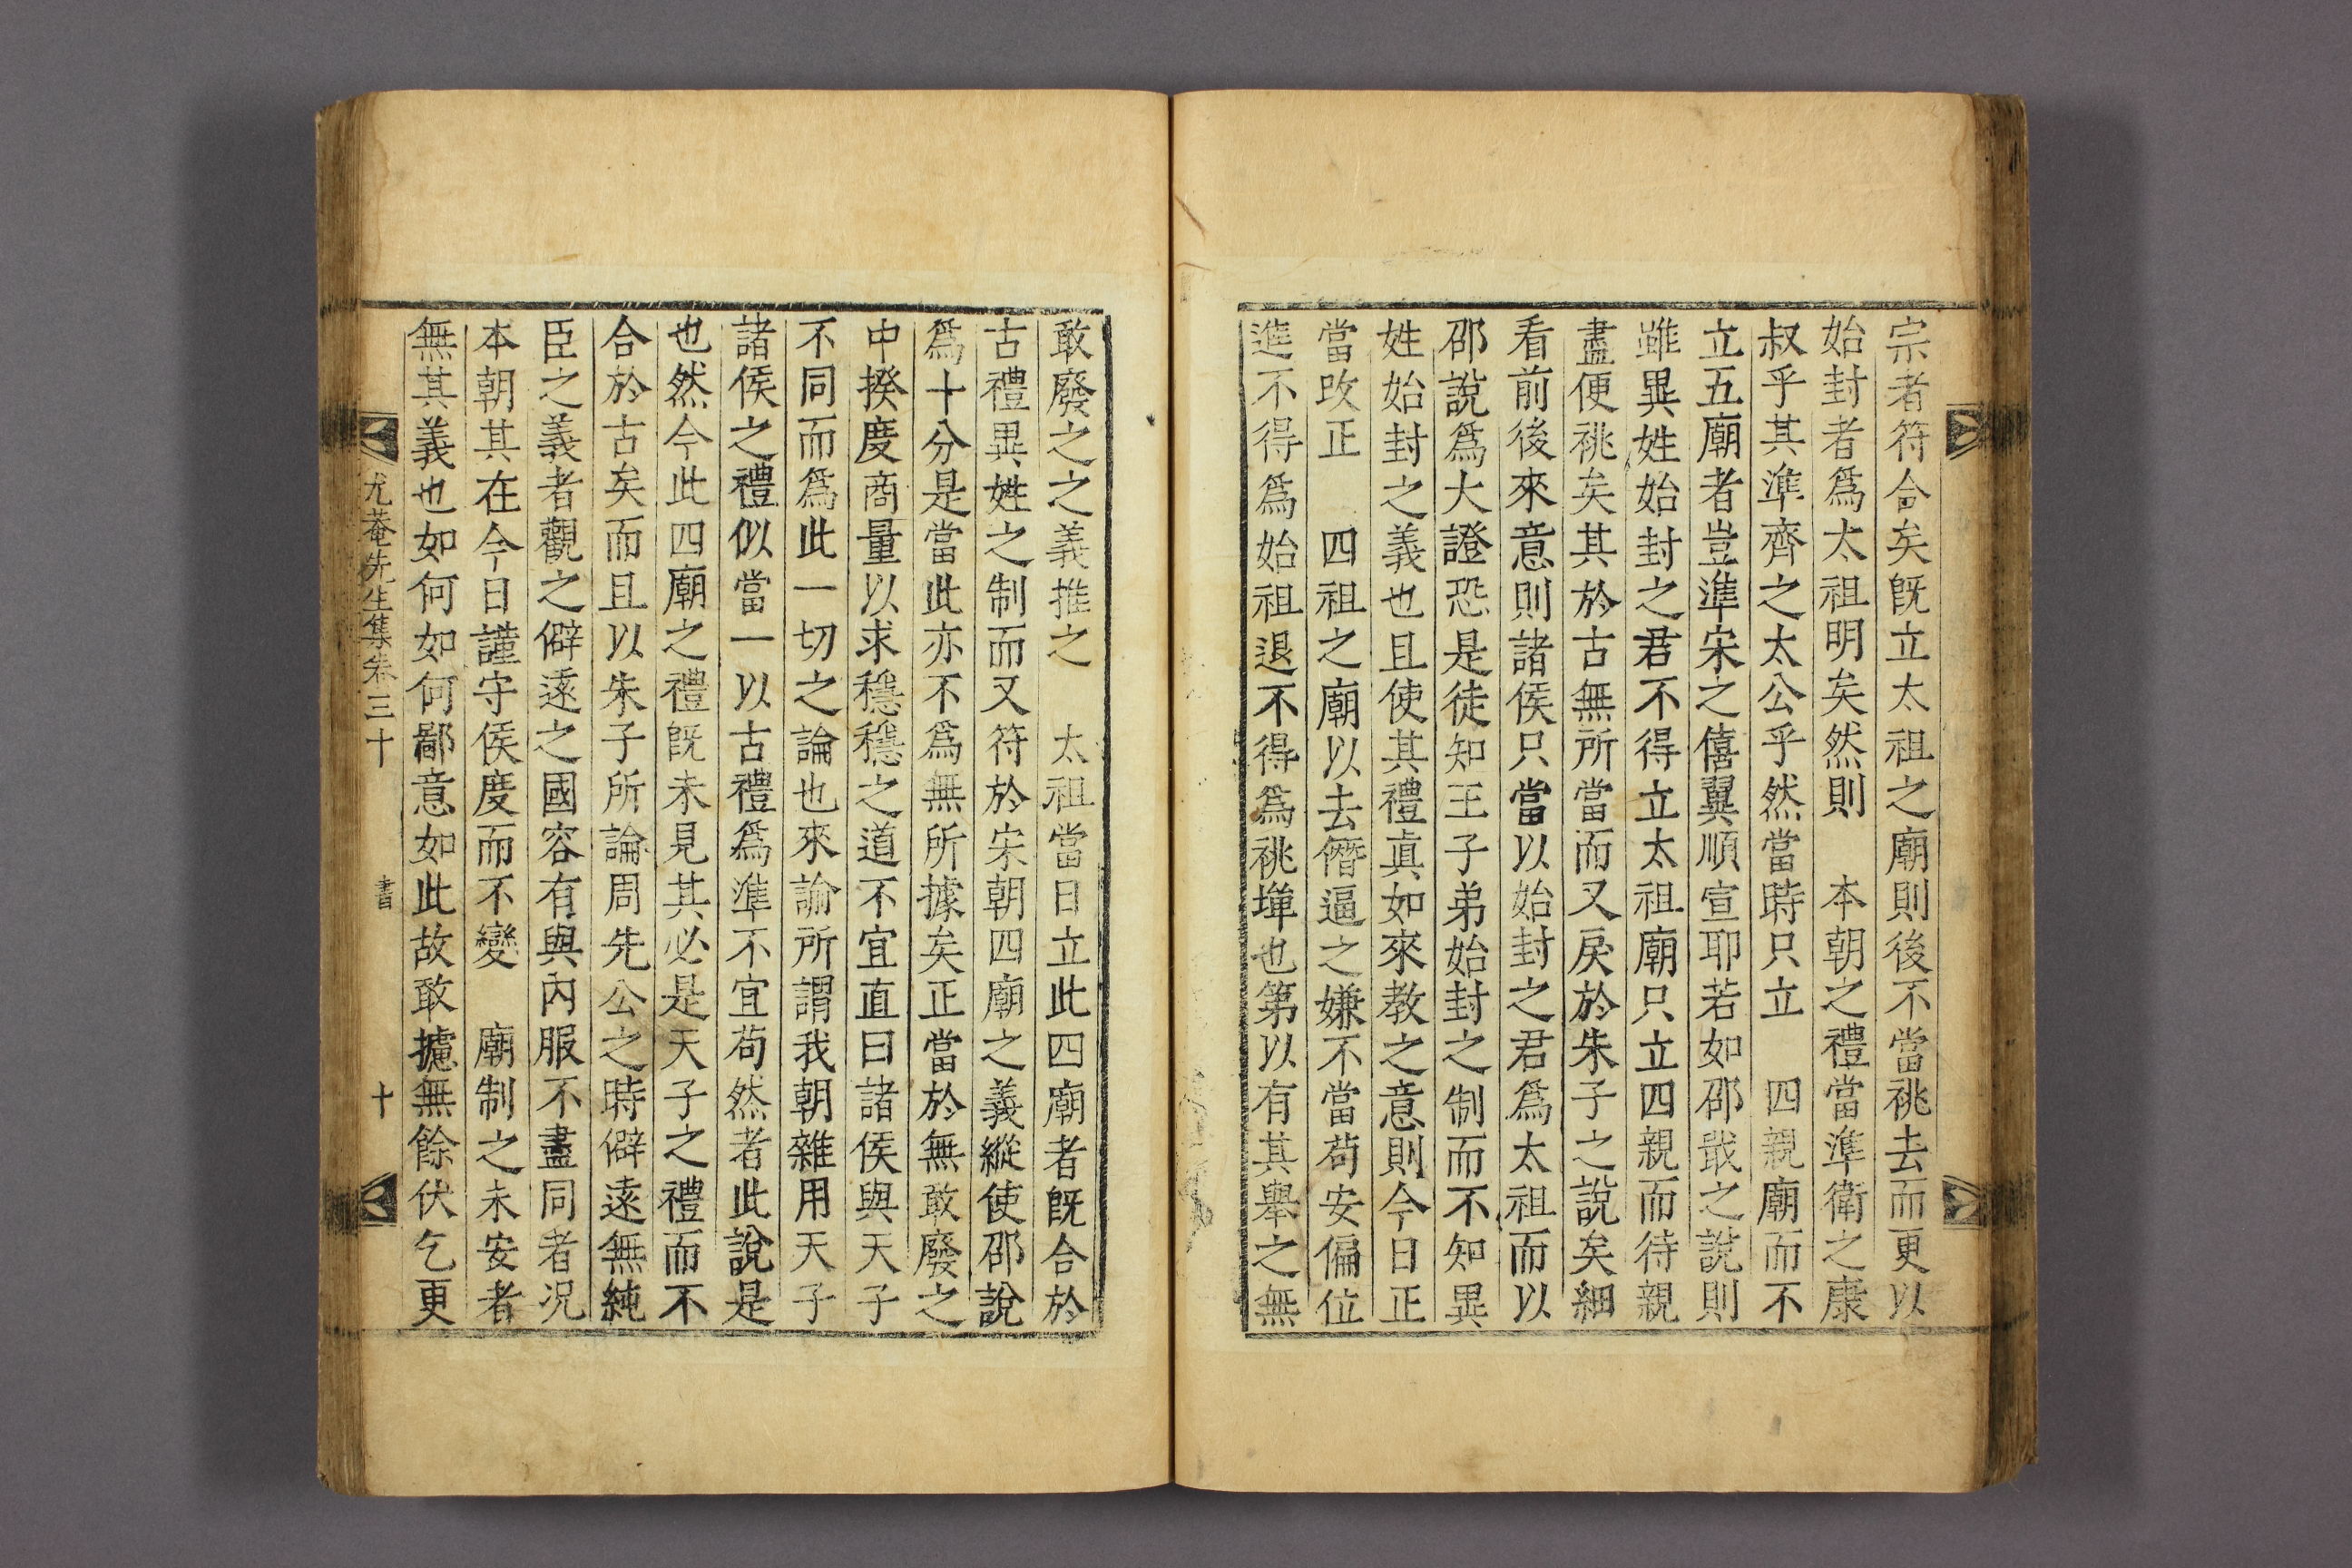 宗者符合矣旣立太祖之廟則後不當祧去而更以
始封者爲太祖明矣然則 本朝之禮當準衛之康
叔乎其準齊之太公乎然當時只立 四親廟而不
立五廟者豈準宋之僖翼順宣耶若如邵戢之說則
雖異姓始封之君不得立太祖廟只立四親而待親
盡便祧矣其於古無所當而又戾於朱子之說矣細
看前後來意則諸侯只當以始封之君爲太祖而以
邵說爲大證恐是徒知王子弟始封之制而不知異
姓始封之義也且使其禮眞如來教之意則今日正
當改正 四祖之廟以去僭逼之嫌不當苟安偏位
進不得爲始祖退不得爲祧墠也第以有其舉之無
敢廢之之義推之 太祖當日立此四廟者旣合於
古禮異姓之制而又符於宋朝四廟之義縱使邵說
爲十分是當此亦不爲無所據矣正當於無敢廢之
中揆度商量以求穩穩之道不宜直曰諸侯與天子
不同而爲此一切之論也來諭所謂我朝雜用天子
諸侯之禮似當一以古禮爲準不宜苟然者此說是
也然今此四廟之禮旣未見其必是天子之禮而不
合於古矣而且以朱子所論周先公之時僻遠無純
臣之義者觀之僻遠之國容有與內服不盡同者況
本朝其在今日謹守侯度而不變 廟制之未安者
無其義也如何如何鄙意如此故敢攄無餘伏乞更
尤菴先生集卷三十 書 十